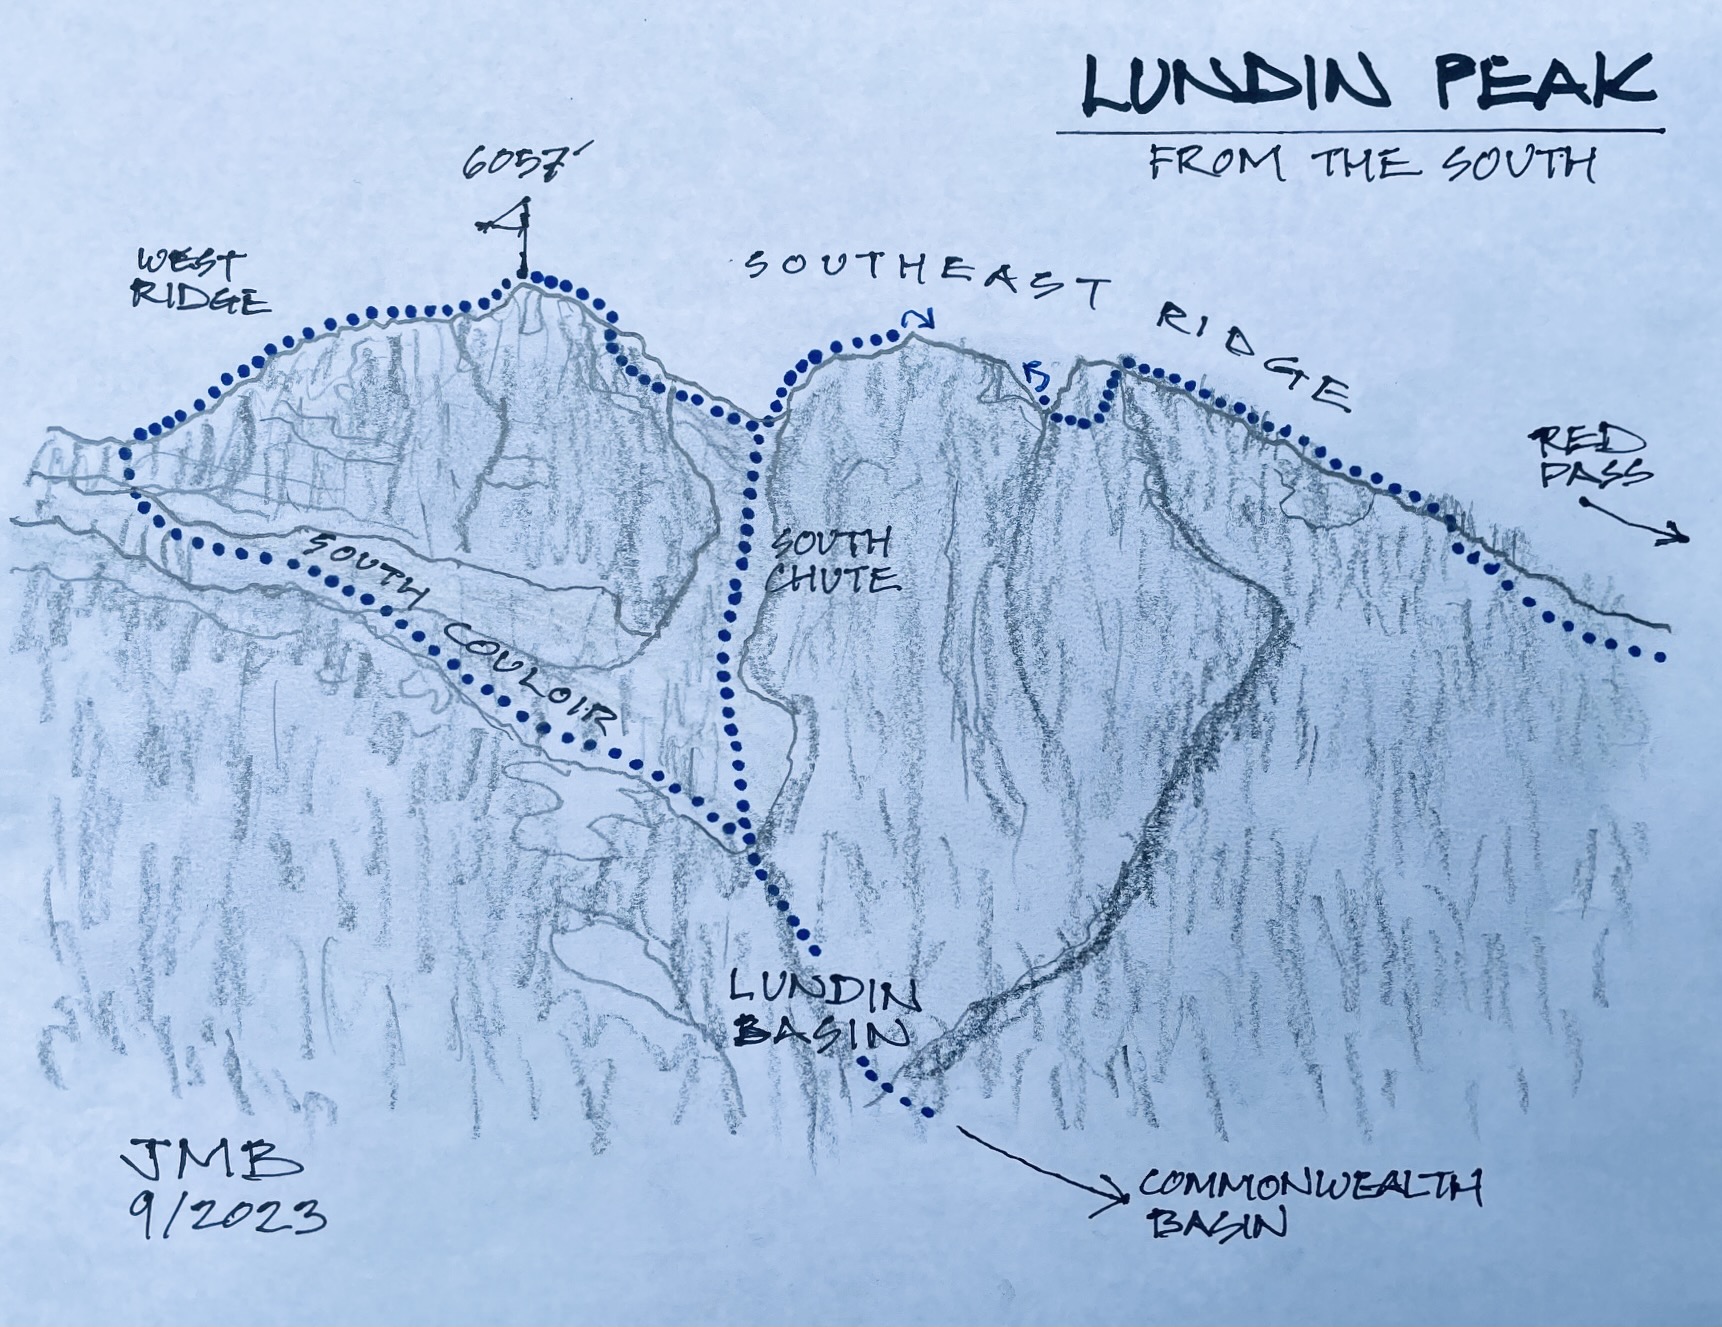 LUNDIN PEAK
FROM THE SOUTH
6057'
WEST
RIDGE
SOUTHEAST RIDGE
RED
PASS
SOUTH
CHUTE
SOUTH COULOIR
LUNDIN
BASIN
COMMONWEALTH
BASIN
JMB
9/2023